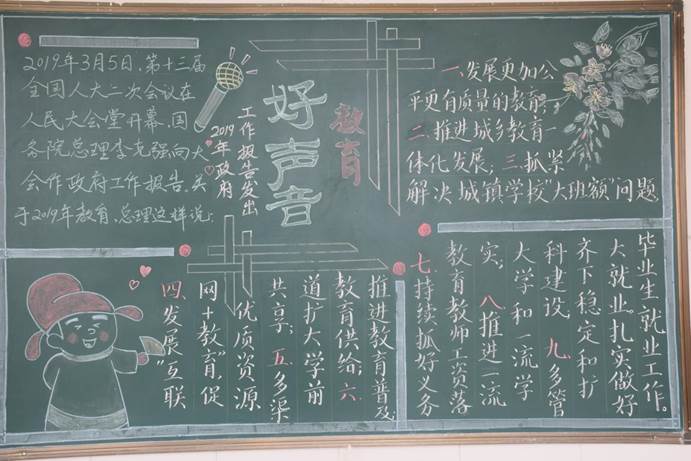 2019年3月5日,第十三届
全国人大二次会议在
人民大会堂开幕,国
务院总理李克强向大
会作政府工作报告。关
于2019年教育,总理这样说:
2019年政府
工作报告发出
好声音
教育
一.发展更加公
平更有质量的教育;
二.推进城乡教育一
体化发展;三.抓紧
解决城镇学校"大班额"问题
四.发展"互联
网+教育",促
优质资源
共享;五.多渠
道扩大学前
教育供给;六.
推进教育普及;
七.持续抓好义务
教育教师工资落
实;八.推进一流
大学和一流学
科建设 九.多管
齐下稳定和扩
大就业,扎实做好
毕业生就业工作。